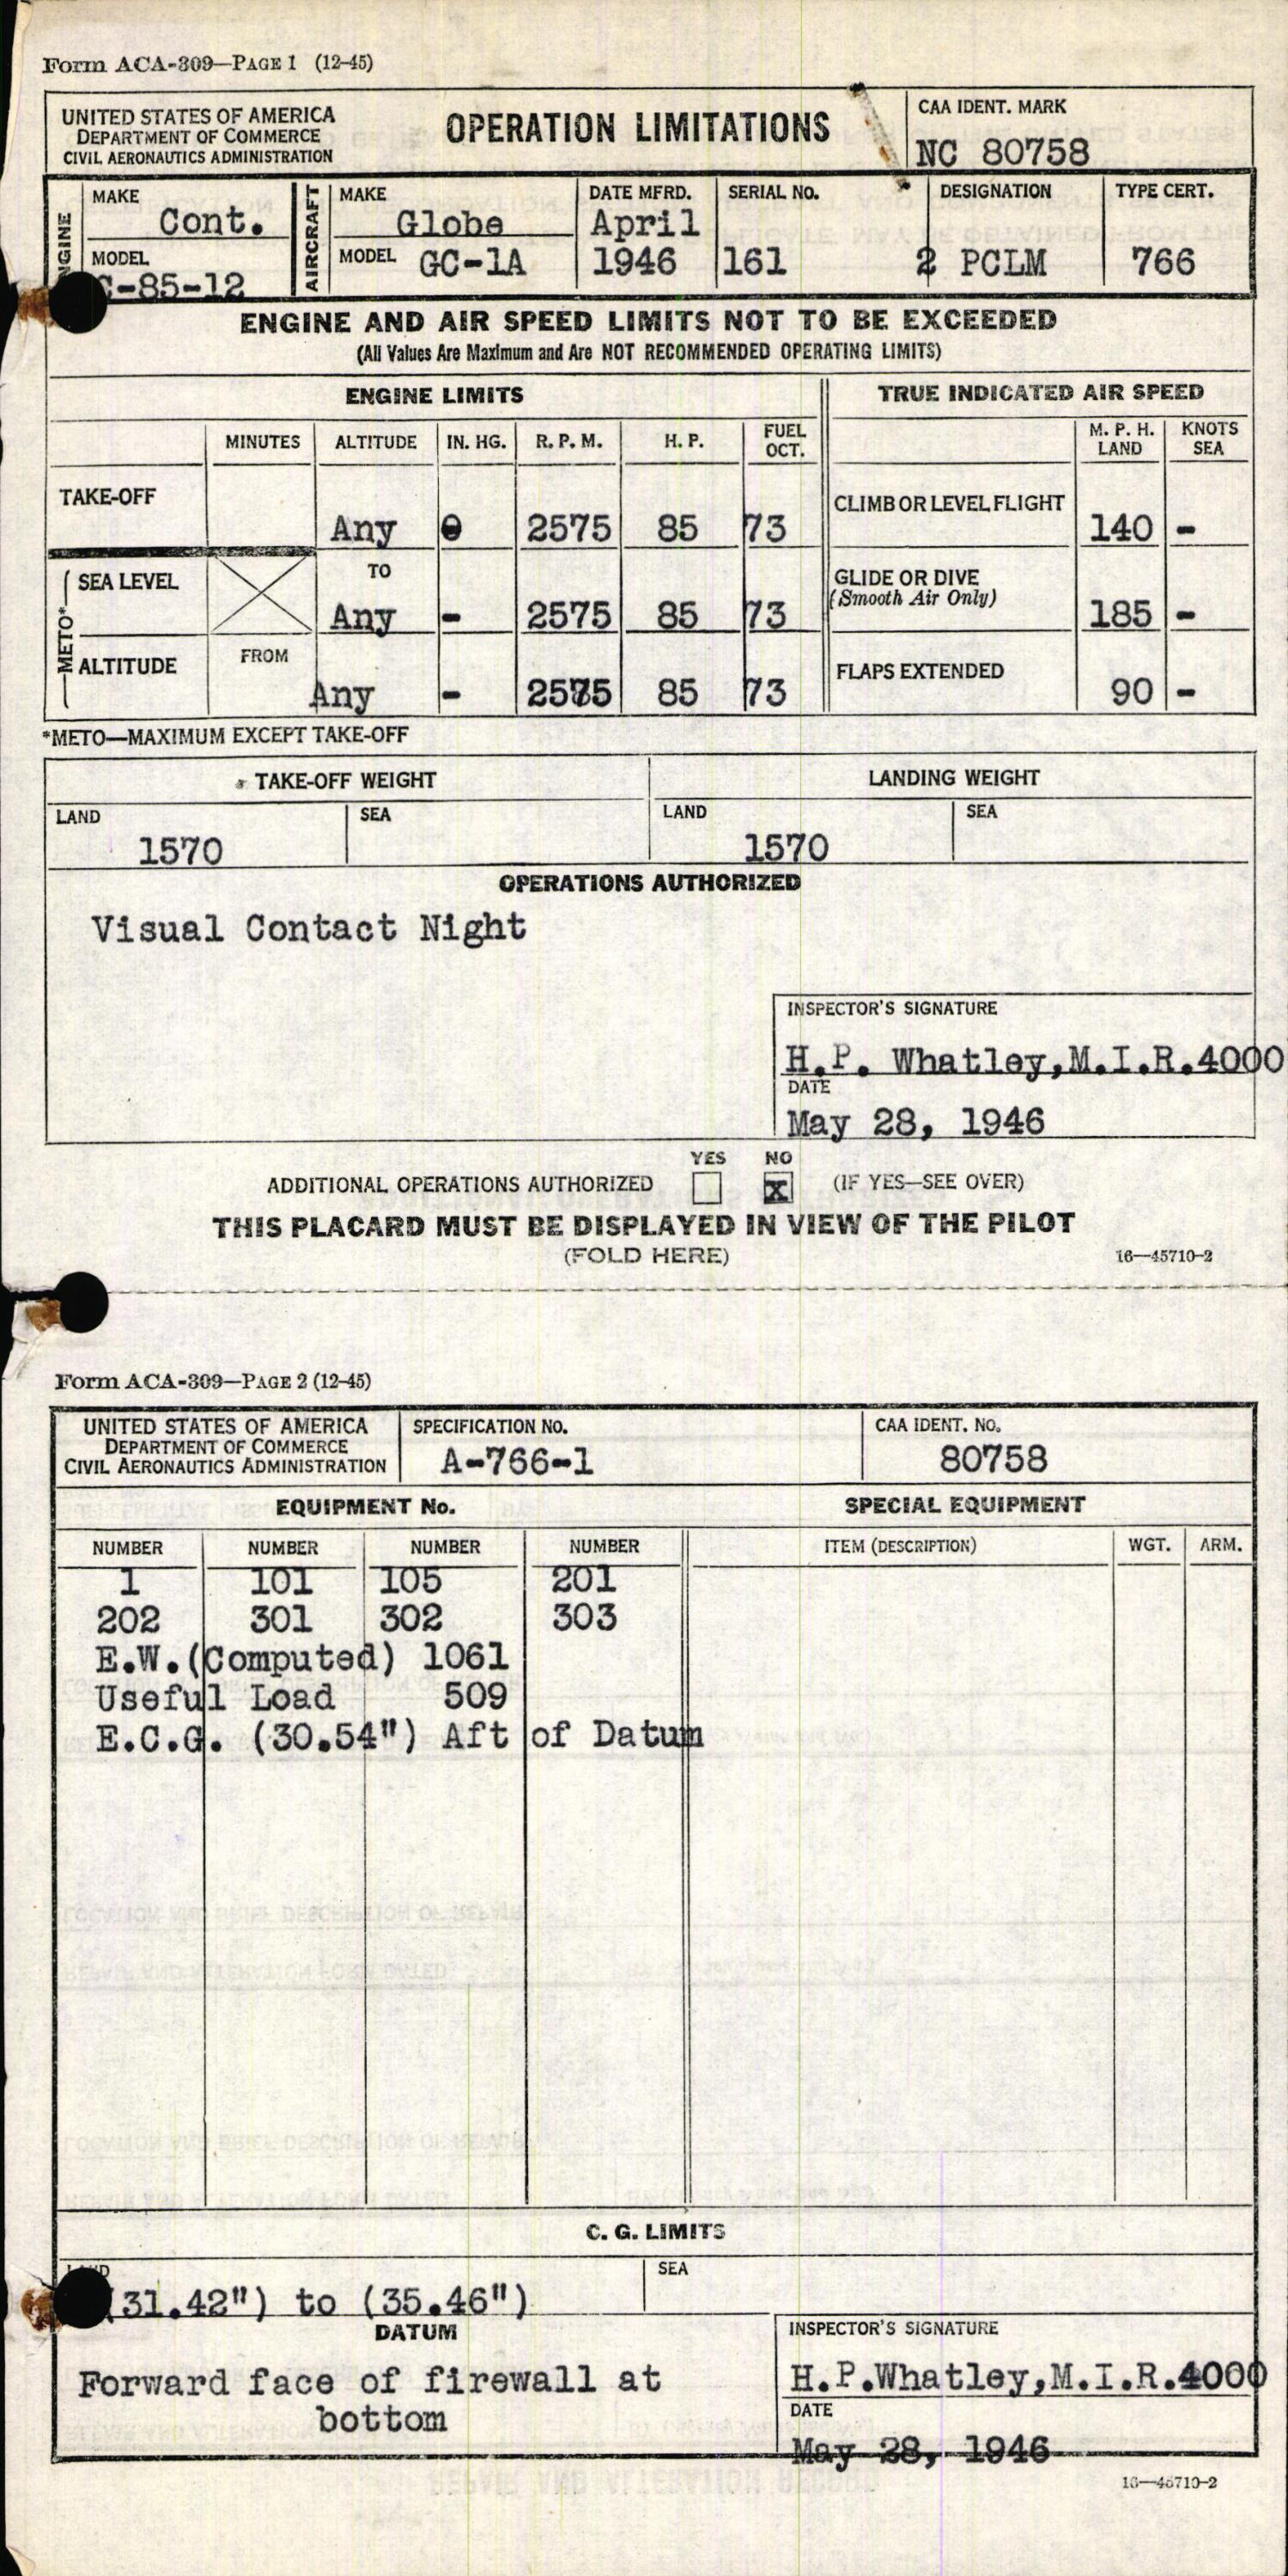 Form ACA-309—PAGE 1 (12-45)
UNITED STATES OF AMERICA
DEPARTMENT OF COMMERCE
CIVIL AERONAUTICS ADMINISTRATION
OPERATION LIMITATIONS
CAA IDENT. MARK
NC 80758
ENGINE
MAKE
Cont.
MODEL
C-85-12
AIRCRAFT
MAKE
Globe
MODEL GC-1A
DATE MFRD.
April
1946
SERIAL NO.
161
DESIGNATION
2 PCLM
TYPE CERT.
766
ENGINE AND AIR SPEED LIMITS NOT TO BE EXCEEDED
(All Values Are Maximum and Are NOT RECOMMENDED OPERATING LIMITS)
ENGINE LIMITS
TRUE INDICATED AIR SPEED
MINUTES ALTITUDE IN. HG. R. P. M. H. P. FUEL OCT.
M. P. H. LAND KNOTS SEA
TAKE-OFF Any 2575 85 73
CLIMB OR LEVEL FLIGHT 140 -
SEA LEVEL TO Any - 2575 85 73
GLIDE OR DIVE (Smooth Air Only) 185 -
METO*
ALTITUDE FROM Any - 2575 85 73
FLAPS EXTENDED 90 -
*METO—MAXIMUM EXCEPT TAKE-OFF
TAKE-OFF WEIGHT
LANDING WEIGHT
LAND SEA LAND SEA
1570 1570
OPERATIONS AUTHORIZED
Visual Contact Night
INSPECTOR'S SIGNATURE
H.P. Whatley,M.I.R.4000
DATE
May 28, 1946
YES NO
ADDITIONAL OPERATIONS AUTHORIZED X (IF YES—SEE OVER)
THIS PLACARD MUST BE DISPLAYED IN VIEW OF THE PILOT
(FOLD HERE)
16—45710-2
Form ACA-309—PAGE 2 (12-45)
UNITED STATES OF AMERICA
DEPARTMENT OF COMMERCE
CIVIL AERONAUTICS ADMINISTRATION
SPECIFICATION NO.
A-766-1
CAA IDENT. NO.
80758
EQUIPMENT No.
SPECIAL EQUIPMENT
NUMBER NUMBER NUMBER NUMBER ITEM (DESCRIPTION) WGT. ARM.
1 101 105 201
202 301 302 303
E.W.(Computed) 1061
Useful Load 509
E.C.G. (30.54") Aft of Datum
C. G. LIMITS
SEA
(31.42") to (35.46")
DATUM
Forward face of firewall at
bottom
INSPECTOR'S SIGNATURE
H.P.Whatley,M.I.R.4000
DATE
May 28, 1946
16—45710-2